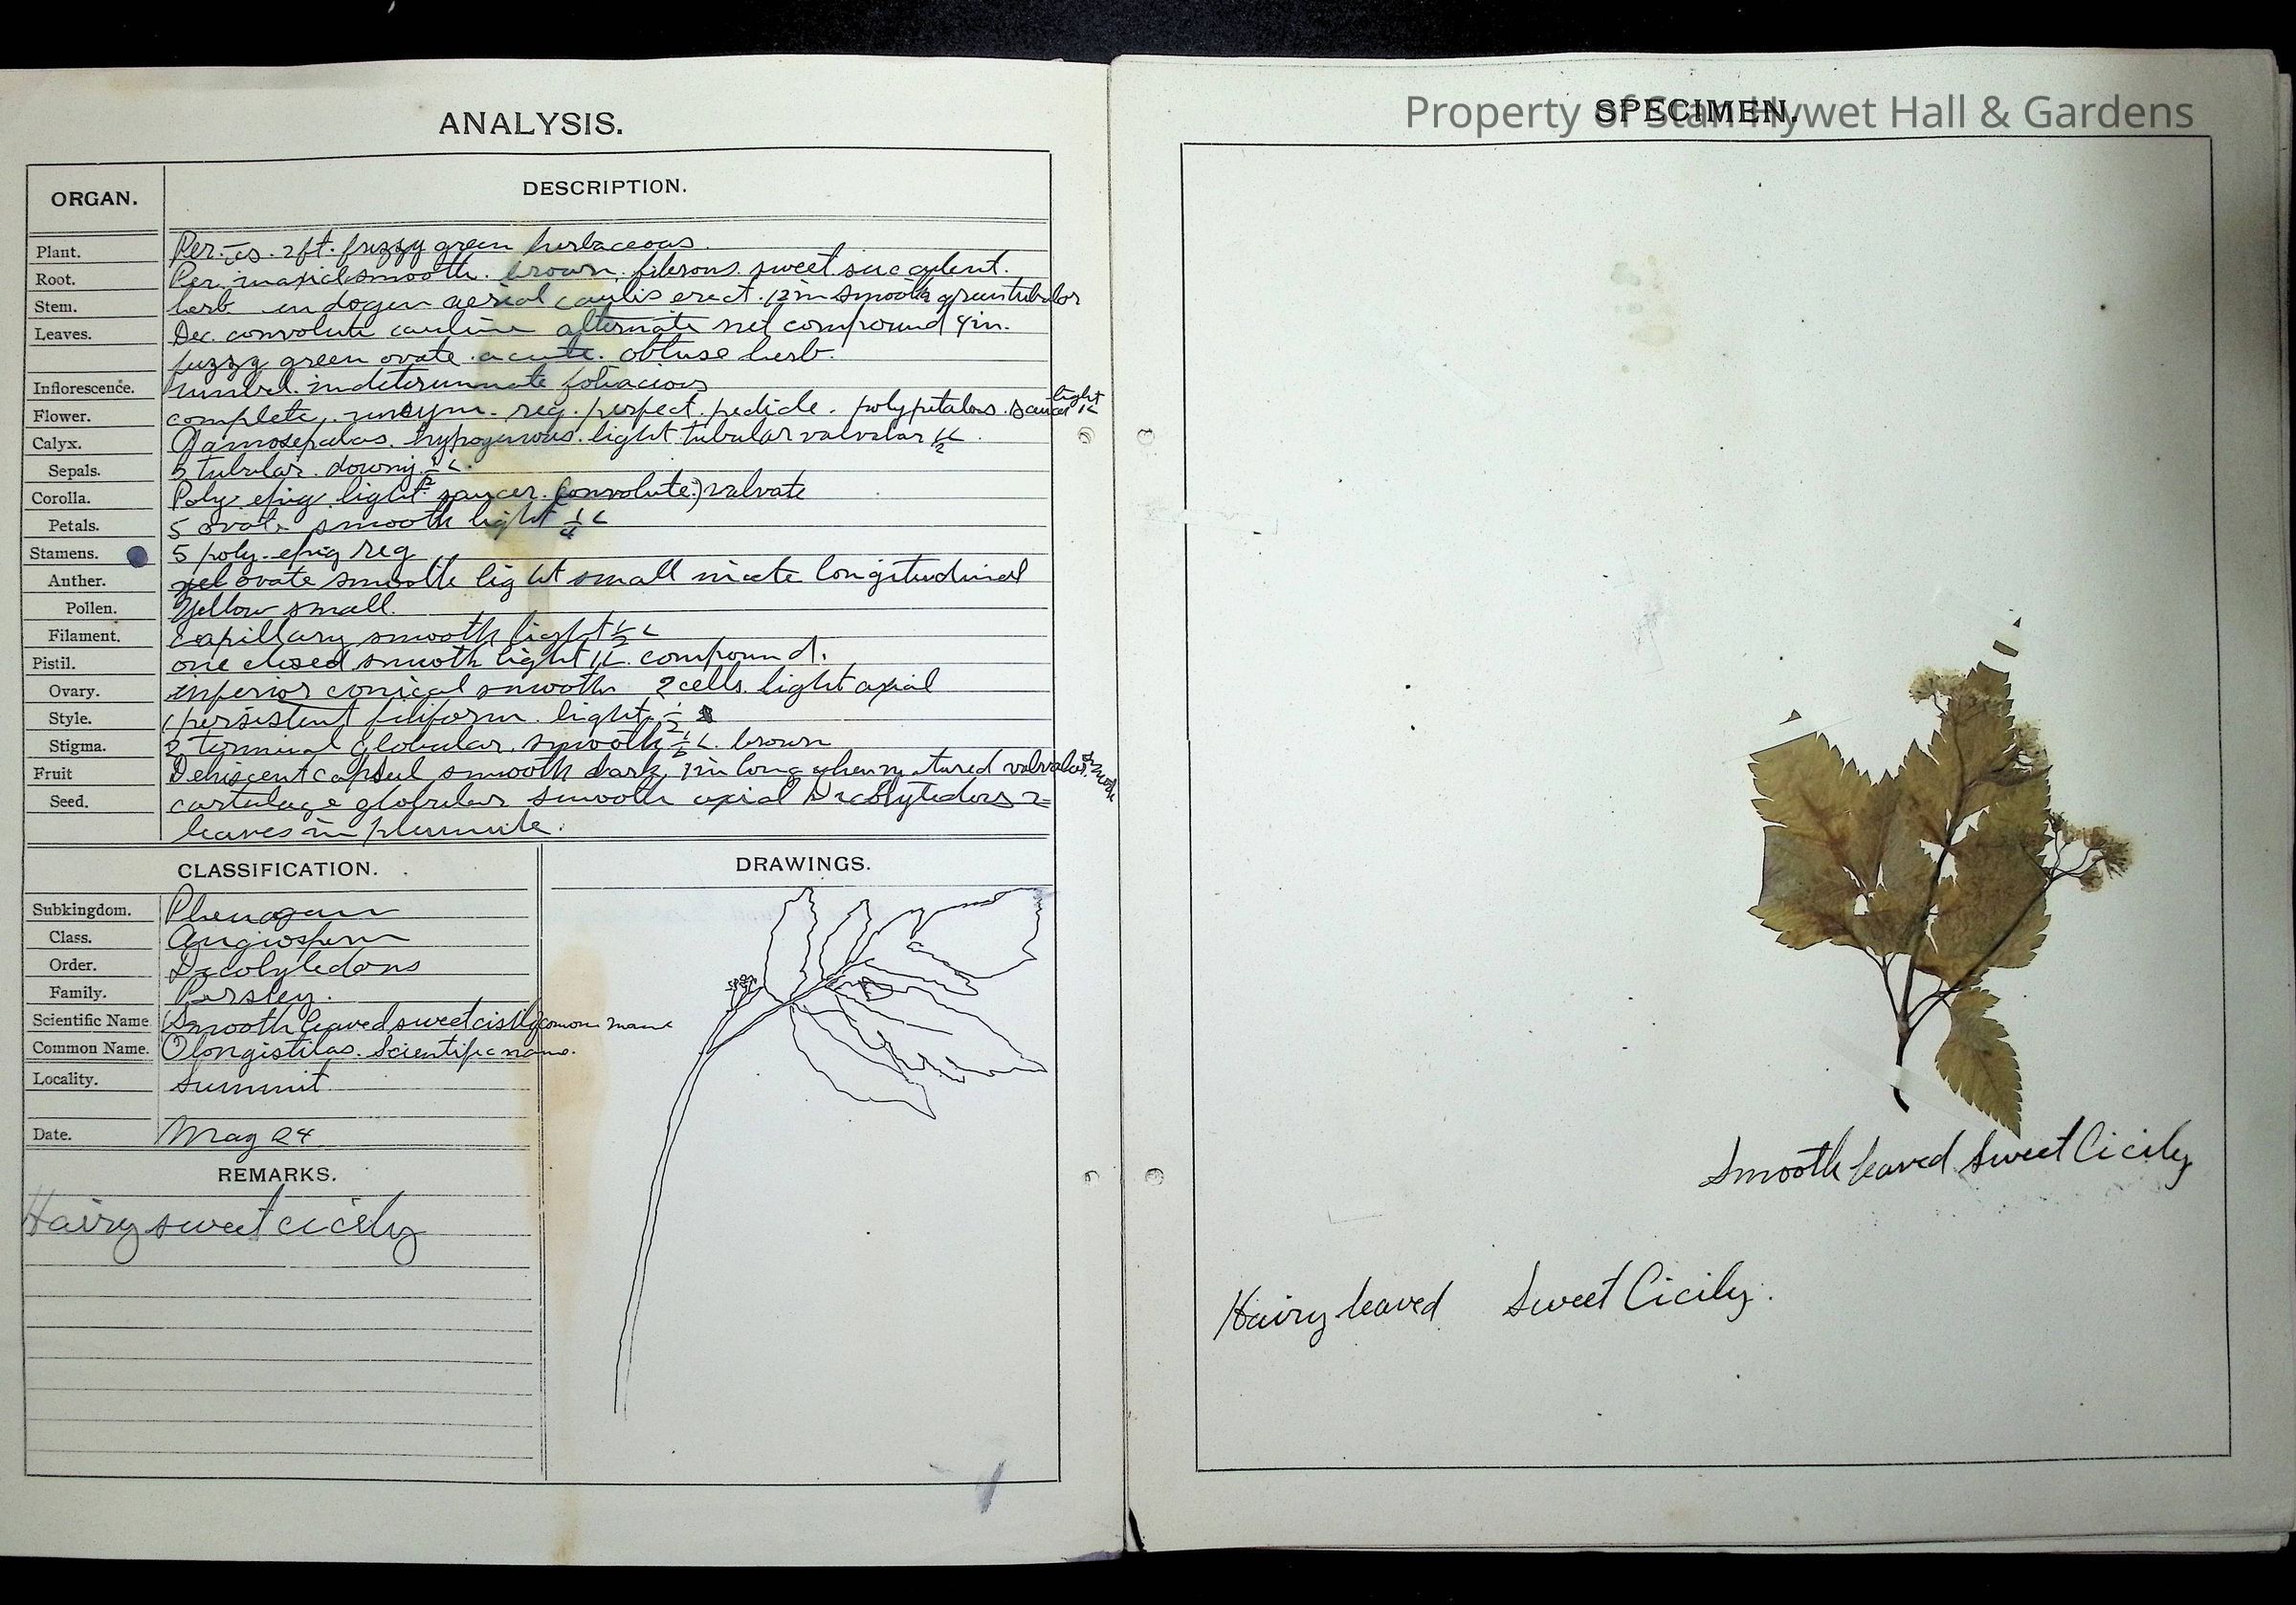 ANALYSIS.
ORGAN.
DESCRIPTION.
Plant. 2ft. fuzzy green herbaceous.
Root. Per. smooth. brown. fibrous. sweet. succulent.
Stem. herb endogen aerial caulis erect. 12in smooth green tubular
Leaves. Dec. convolute cauline alternate net compound 4in.
fuzzy green ovate. acute. obtuse herb.
Inflorescence. umbel. indeterminate foliacious
Flower. complete. unsym. reg. perfect. pedicle. polypetalous. saucer light
Calyx. Gamosepalas. hypogenous. light tubular valvular
Sepals. 5 tubular. downy.
Corolla. Poly. epig. light. saucer. (convolute.) valvate
Petals. 5 ovate smooth light 1/4 L
Stamens. 5 poly. epig reg
Anther. ovate smooth light small longitudinal
Pollen. Yellow small.
Filament. capillary smooth light 1/2 L
Pistil. one closed smooth light 1L. compound.
Ovary. inferior conical smooth 2 cells. light axial
Style. 1 persistent filiform. light.
Stigma. 2 terminal globular. smooth brown
Fruit Dehiscent capsul smooth dark. 1in long when valvular.
Seed. cartilage globular smooth axial Dicolytedons 2
leaves in plumule.
CLASSIFICATION.
Subkingdom. Phenogam
Class. Angiosperm
Order. Dicolyledons
Family. Parsley.
Scientific Name Smooth leaved sweet cicily comon name
Common Name. Olongistilas. Scientific name.
Locality. Summit
Date. May 24
REMARKS.
Hairy sweet cicily
DRAWINGS.
SPECIMEN.
Property of Stan Hywet Hall & Gardens
Smooth leaved Sweet Cicily
Hairy leaved Sweet Cicily.